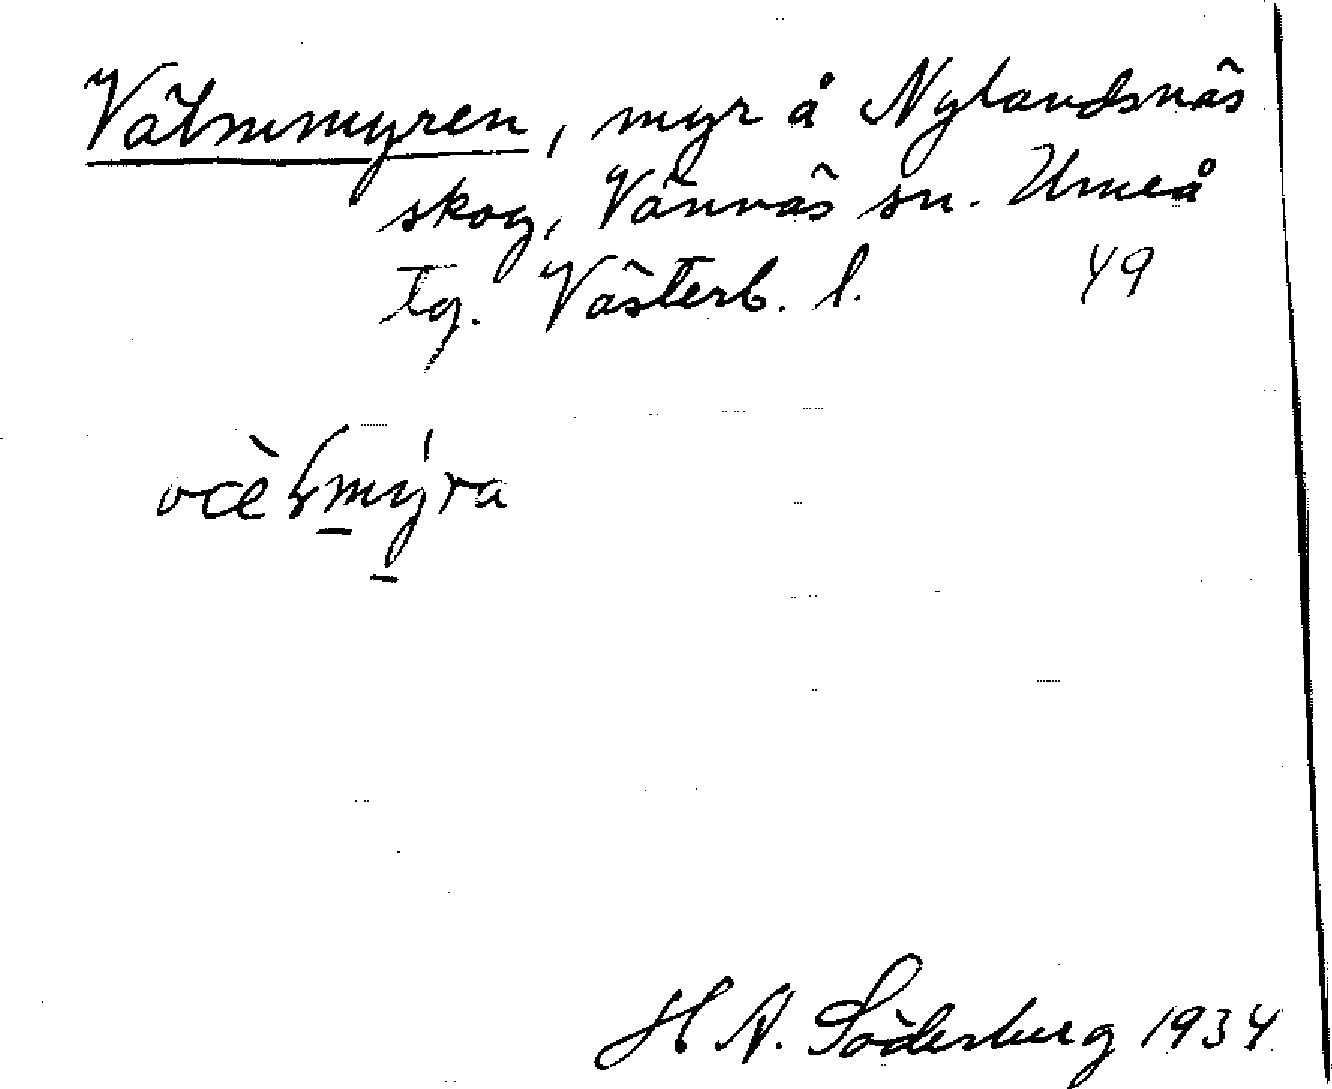 Välmmyren, myr å Nylandsnäs
skog, Vännäs sn. Umeå
tg. Västerb. l. 49
H N. Söderberg 1934